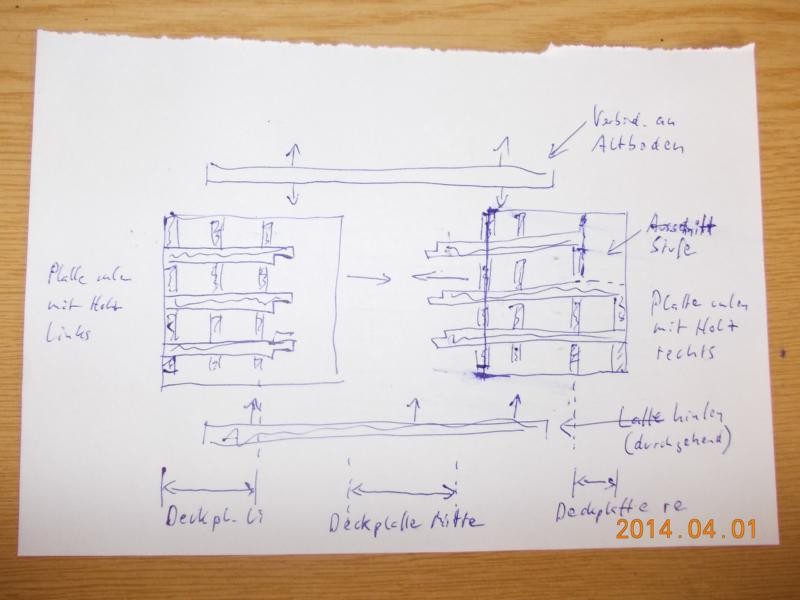 Verbind. an
Altboden
Ausschnitt
Stufe
Platte unten
mit Holz
Links
Platte unten
mit Holz
rechts
Latte hinten
(durchgehend)
Deckpl. Li
Deckplatte Mitte
Deckplatte re
2014.04.01